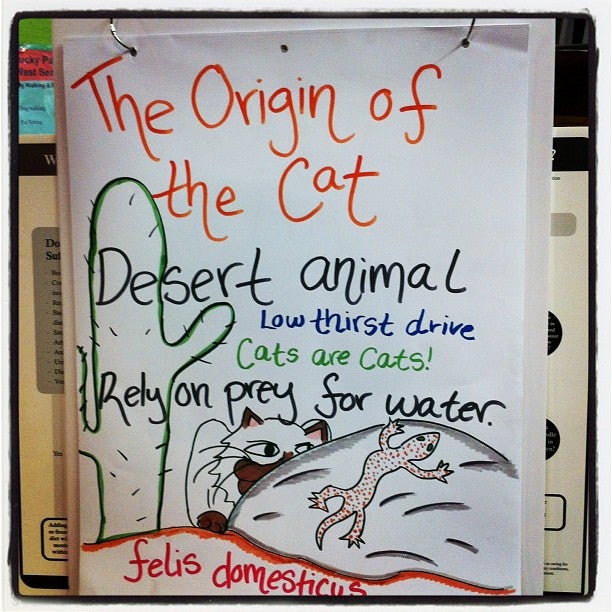 The Origin of
the Cat
Desert animal
Low thirst drive
Cats are Cats!
Rely on prey for water.
felis domesticus